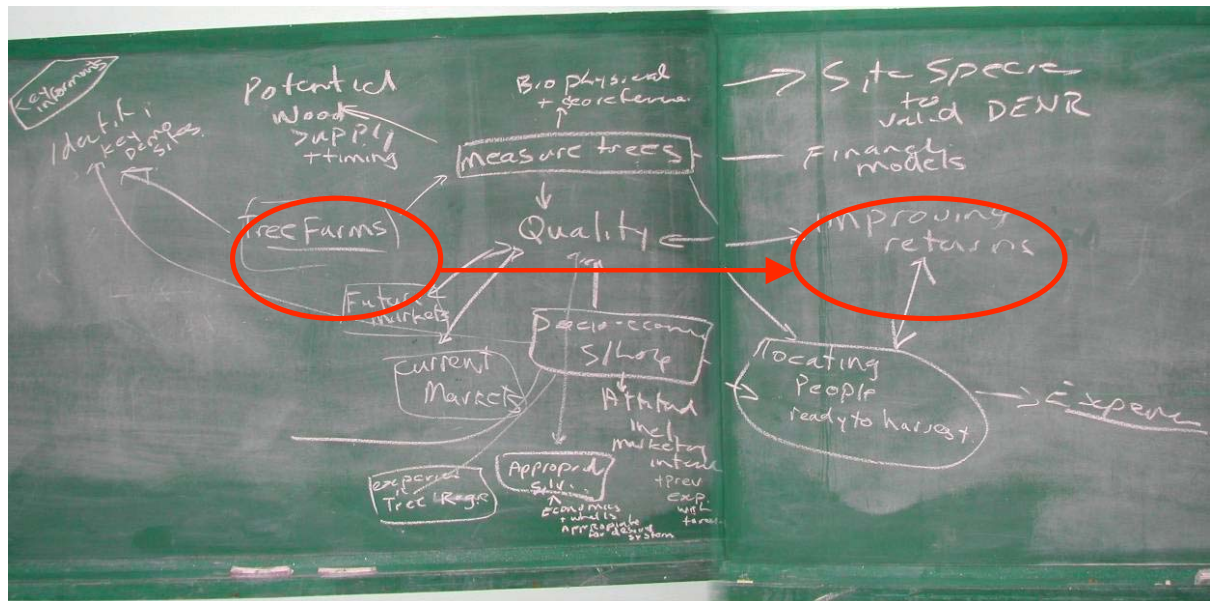 Key
informants
Identifi
Key
Demo
sites
Potential
Wood
Supply
+ timing
Biophysical
+ georeference
measure trees
Site Specie
to
valid DENR
Financl
models
Tree Farms
Quality
improving
returns
Future
markets
Current
Markets
Socio-econ
S/hold
locating
People
ready to harvest
Experie
Attitud
Incl
marketing
intent
+ prev
Exp.
with
experience
Tree Regis
Appropriate
Silv.
Economics
+ what is
Appropriate
for desired
system